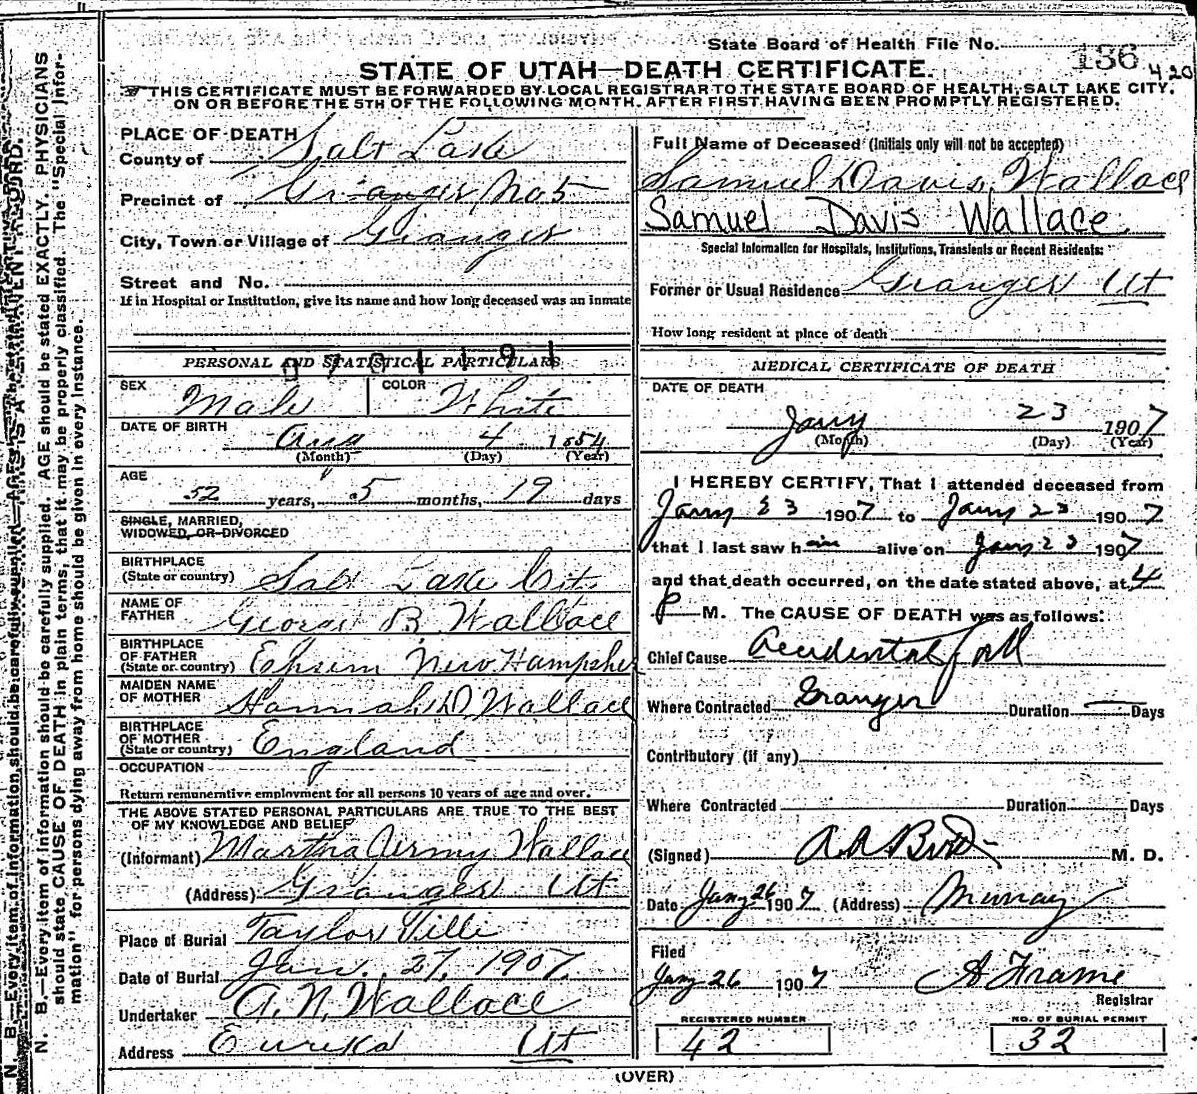 State Board of Health File No. 136 420
STATE OF UTAH—DEATH CERTIFICATE.
THIS CERTIFICATE MUST BE FORWARDED BY LOCAL REGISTRAR TO THE STATE BOARD OF HEALTH, SALT LAKE CITY,
ON OR BEFORE THE 5TH OF THE FOLLOWING MONTH, AFTER FIRST HAVING BEEN PROMPTLY REGISTERED.
PLACE OF DEATH
County of Salt Lake
Precinct of Granger No 5
City, Town or Village of Granger
Street and No.
If in Hospital or Institution, give its name and how long deceased was an inmate
Full Name of Deceased (Initials only will not be accepted)
Samuel Davis Wallace
Samuel Davis Wallace
Special Information for Hospitals, Institutions, Transients or Recent Residents:
Former or Usual Residence Granger Ut
How long resident at place of death
PERSONAL AND STATISTICAL PARTICULARS
SEX Male COLOR White
DATE OF BIRTH Aug 4 1854
(Month) (Day) (Year)
AGE
52 years, 5 months, 19 days
SINGLE, MARRIED,
WIDOWED, OR DIVORCED
BIRTHPLACE
(State or country) Salt Lake Cit
NAME OF
FATHER George B. Wallace
BIRTHPLACE
OF FATHER
(State or country) Epsum New Hampsher
MAIDEN NAME
OF MOTHER Hannah D. Wallace
BIRTHPLACE
OF MOTHER
(State or country) England
OCCUPATION
Return remunerative employment for all persons 10 years of age and over.
THE ABOVE STATED PERSONAL PARTICULARS ARE TRUE TO THE BEST
OF MY KNOWLEDGE AND BELIEF
(Informant) Martha Wallace
(Address) Granger Ut
Place of Burial Taylorville
Date of Burial Jan. 27, 1907
Undertaker A. N. Wallace
Address Eureka Ut
MEDICAL CERTIFICATE OF DEATH
DATE OF DEATH
Jany 23 1907
(Month) (Day) (Year)
I HEREBY CERTIFY, That I attended deceased from
Jany 23 1907 to Jany 23 1907
that I last saw him alive on Jany 23 1907
and that death occurred, on the date stated above, at 4
P M. The CAUSE OF DEATH was as follows:
Chief Cause Accidental fall
Where Contracted Granger Duration — Days
Contributory (if any)
Where Contracted Duration Days
(Signed) M. D.
Date Jany 26 1907 (Address) Murray
Filed
Jany 26 1907 A Frame
Registrar
REGISTERED NUMBER
42
NO. OF BURIAL PERMIT
32
(OVER)
N. B.—Every item of information should be carefully supplied. AGE should be stated EXACTLY. PHYSICIANS
should state CAUSE OF DEATH in plain terms, that it may be properly classified. The "Special Infor-
mation" for persons dying away from home should be given in every instance.